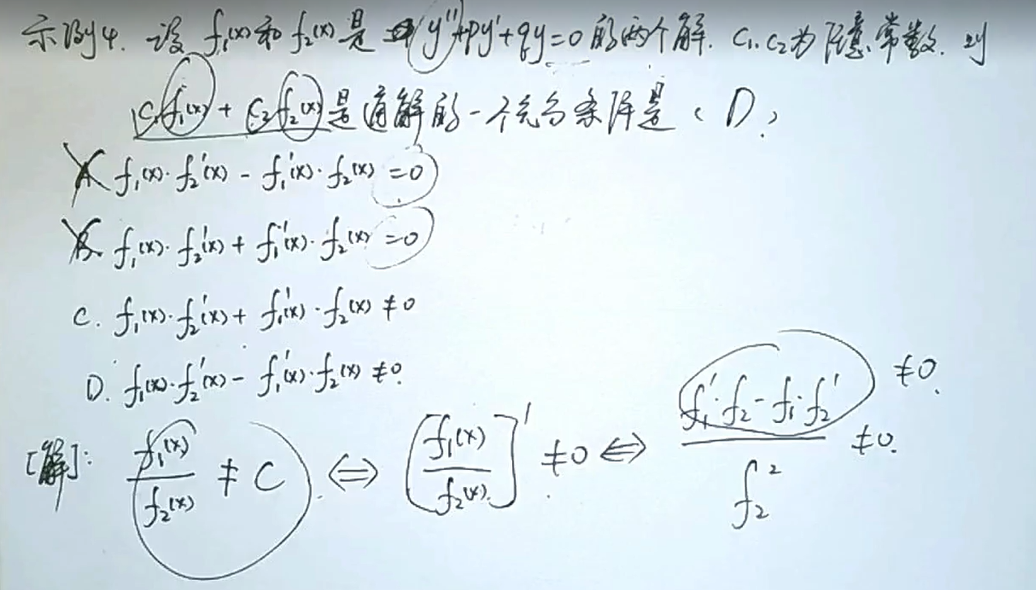 示例4. 设 f₁(x)和 f₂(x)是 y''+py'+qy=0的两个解. C₁, C₂为任意常数. 则
C₁f₁(x) + C₂f₂(x)是通解的一个充分条件是 ( D )
A. f₁(x)·f₂'(x) - f₁'(x)·f₂(x) =0
B. f₁(x)·f₂'(x) + f₁'(x)·f₂(x) =0
C. f₁(x)·f₂'(x) + f₁'(x)·f₂(x) ≠0
D. f₁(x)·f₂'(x) - f₁'(x)·f₂(x) ≠0.
[解]: f₁(x)/f₂(x) ≠ C ⇔ [f₁(x)/f₂(x)]' ≠0 ⇔ (f₁'·f₂ - f₁·f₂')/f₂² ≠0. ≠0.